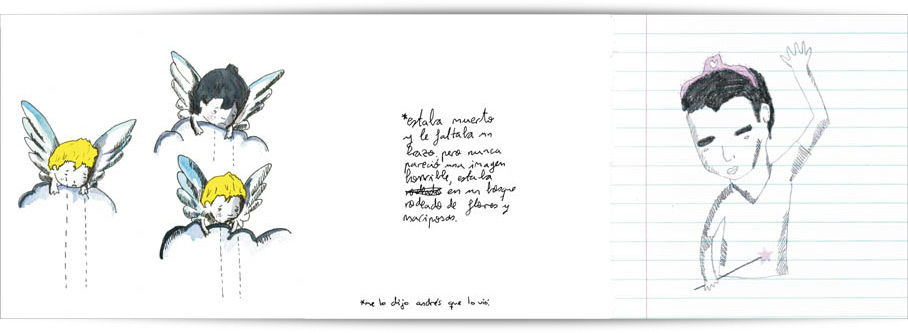 *estaba muerto
y le faltaba un
brazo, pero nunca
pareció una imagen
horrible, estaba
en un bosque
rodeado de flores y
mariposas.
*me lo dijo andrés que lo vió